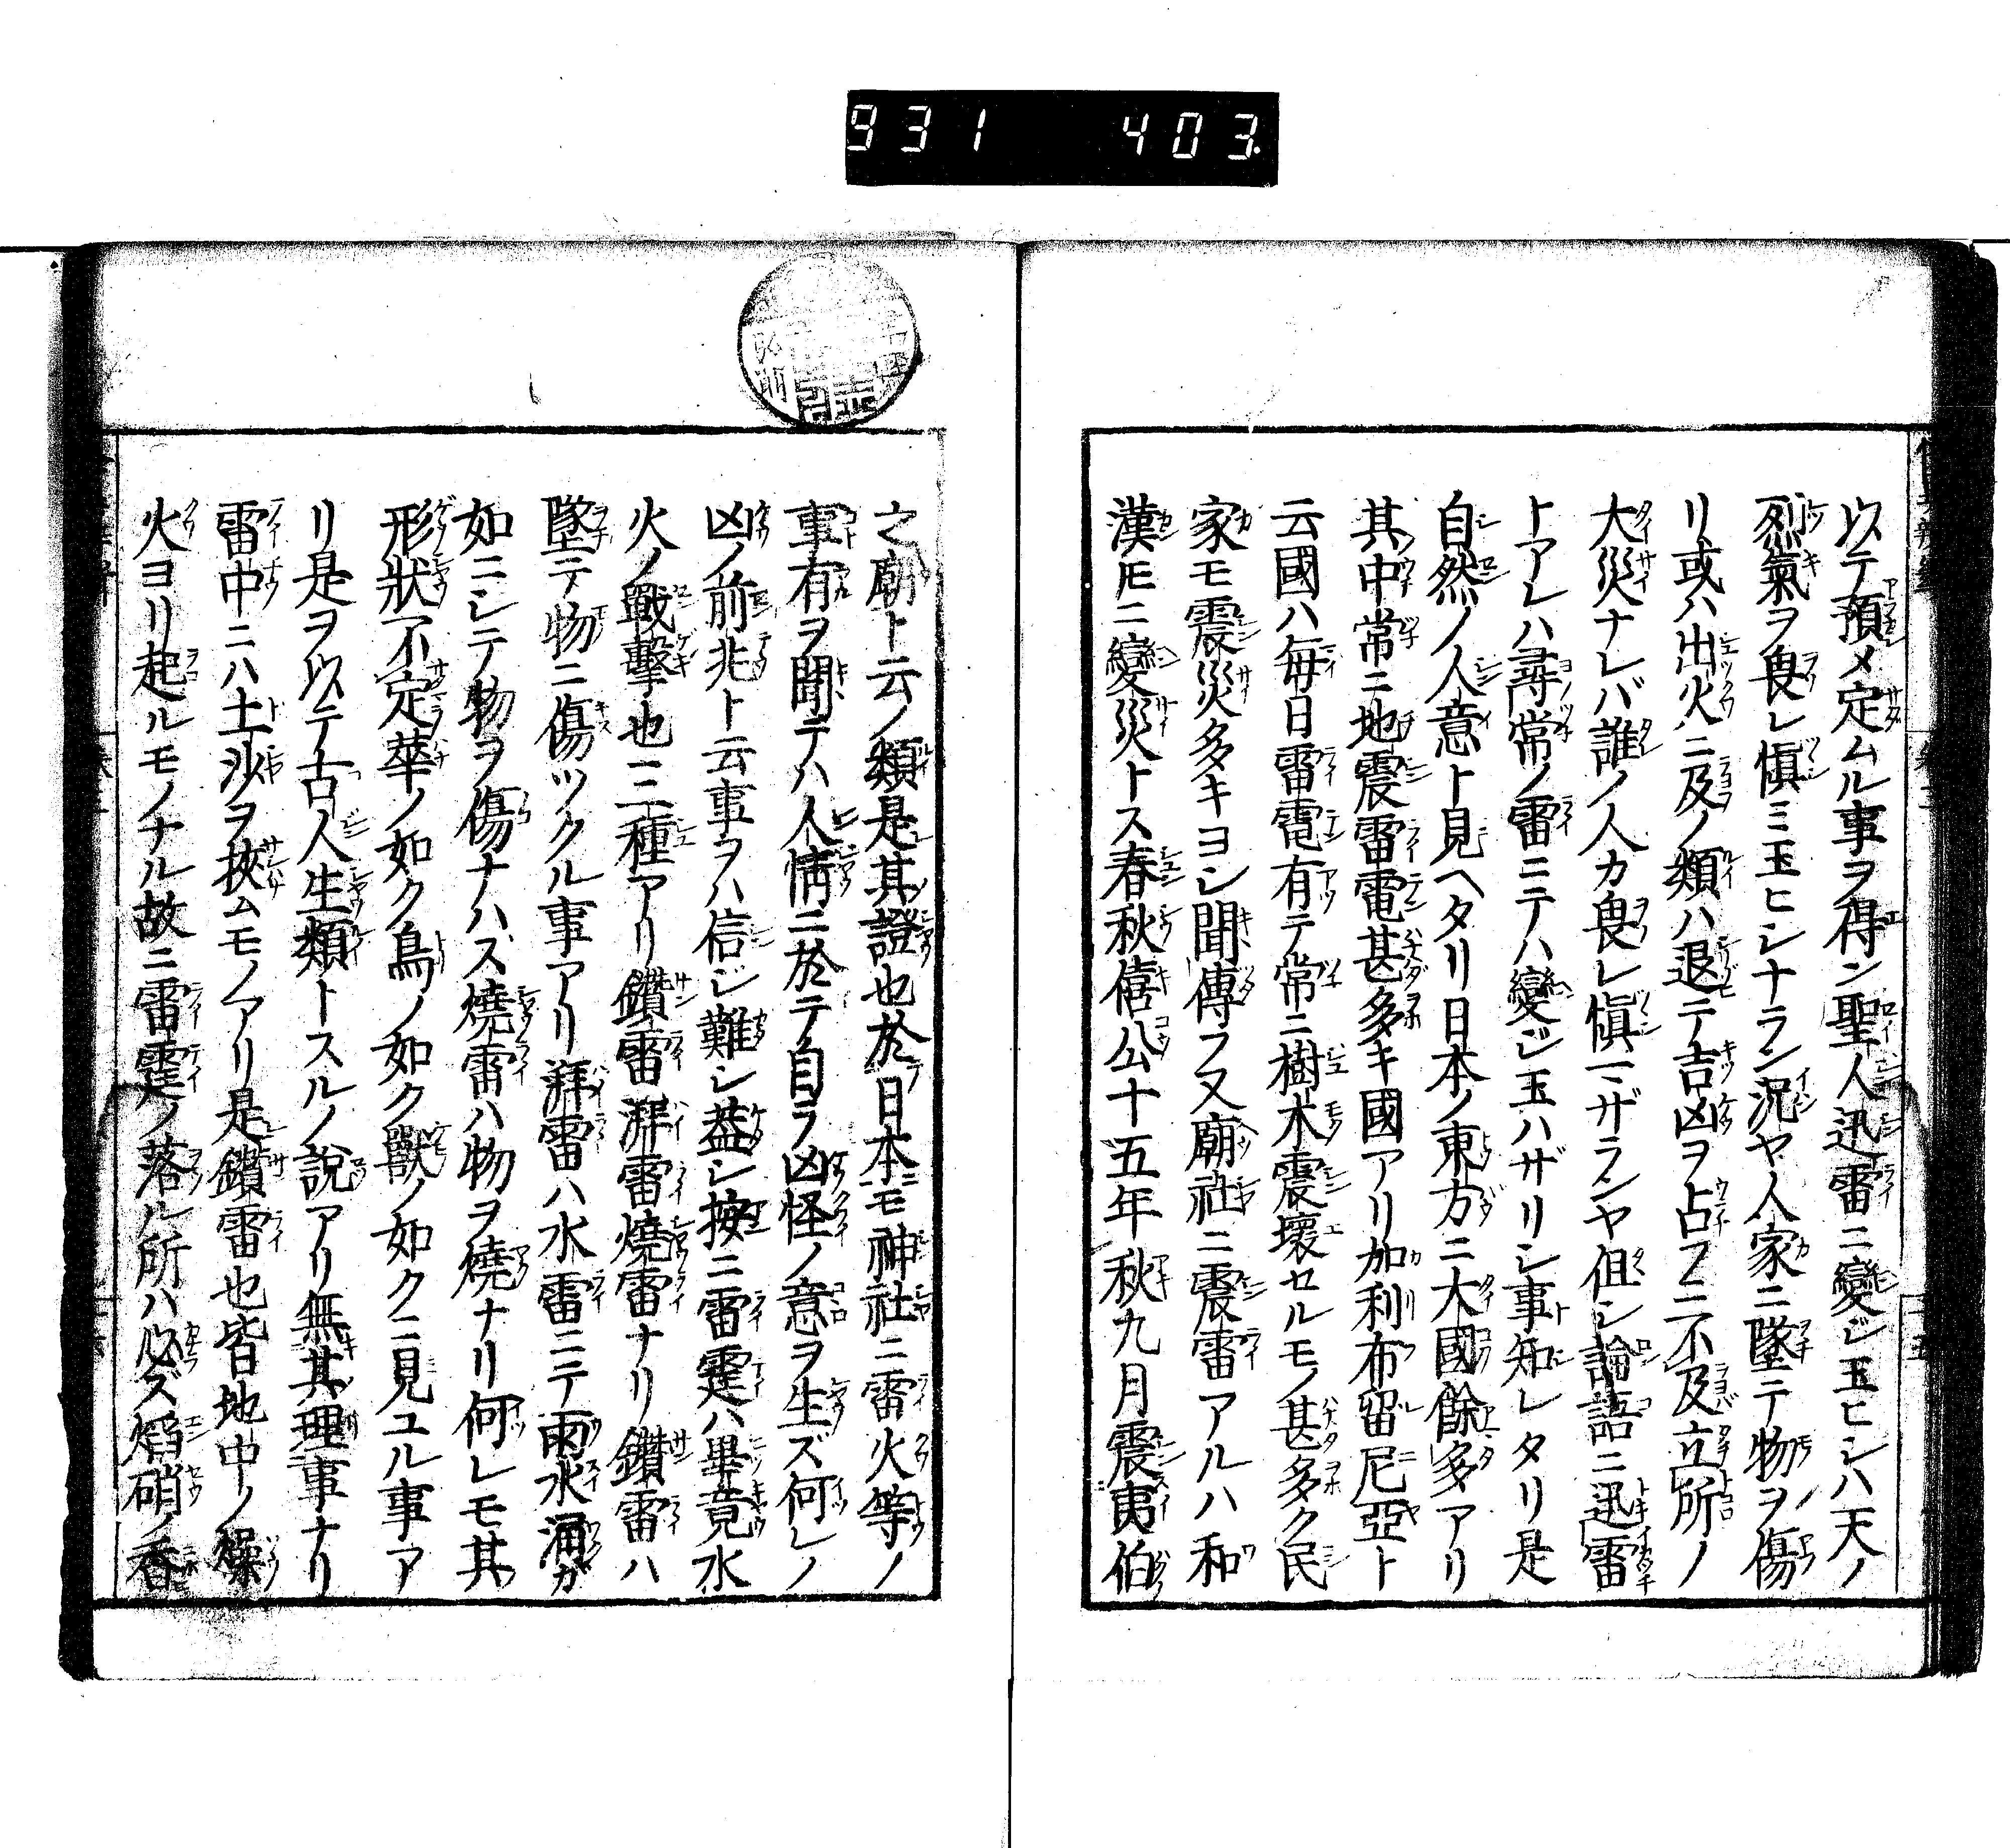 931 403
以テ預メ定ムル事ヲ得ン聖人迅雷ニ變ジ玉ヒシハ天ノ
烈氣ヲ畏レ愼ミ玉ヒシナラン況ヤ人家ニ墜テ物ヲ傷
リ或ハ出火ニ及ノ類ハ退テ吉凶ヲ占フニ不及立所ノ
大災ナレバ誰ノ人カ畏レ愼マザランヤ但シ論語ニ迅雷
トアレハ尋常ノ雷ニテハ變ジ玉ハザリシ事知レタリ是
自然ノ人意ト見ヘタリ日本ノ東方ニ大國餘多アリ
其中常ニ地震雷電甚多キ國アリ加利布留尼亞ト
云國ハ毎日雷電有テ常ニ樹木震壞セルモノ甚多ク民
家モ震災多キヨシ聞傳フ又廟社ニ震雷アルハ和
漢𪜈ニ變災トス春秋僖公十五年秋九月震夷伯
之廟ト云ノ類是其證也於日本モ神社ニ雷火等ノ
事有ヲ聞テハ人情ニ於テ自ラ凶怪ノ意ヲ生ズ何レノ
凶ノ前兆ト云事ヲハ信ジ難シ葢シ按ニ雷霆ハ畢竟水
火ノ戰擊也三種アリ鑽雷湃雷燒雷ナリ鑽雷ハ
墜テ物ニ傷ツクル事アリ湃雷ハ水雷ニテ雨水涌ガ
如ニシテ物ヲ傷ナハズ燒雷ハ物ヲ燒ナリ何レモ其
形狀不定華ノ如ク鳥ノ如ク獸ノ如クニ見ユル事ア
リ是ヲ以テ古人生類トスルノ說アリ無其理事ナリ
雷中ニハ土沙ヲ挾ムモノアリ是鑽雷也皆地中ノ燥
火ヨリ起ルモノナル故ニ雷霆ノ落ル所ハ必ズ焰硝ノ香